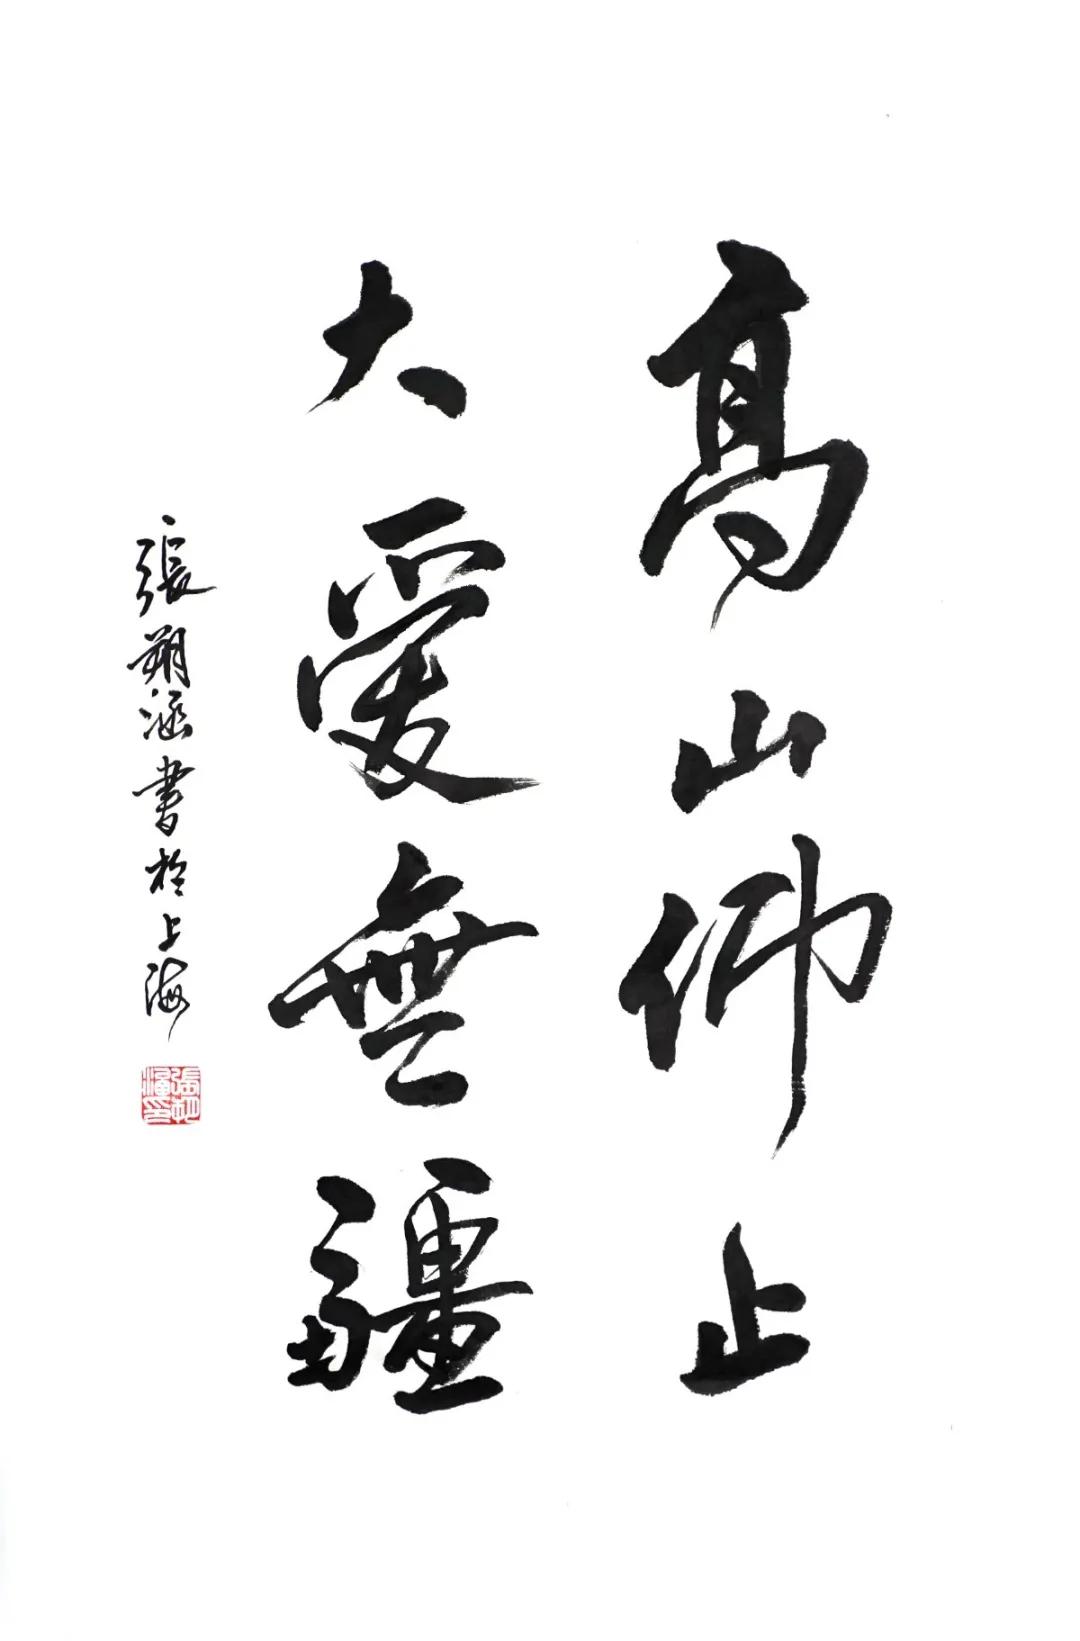 高山仰止
大愛無疆
張朔涵書於上海
張朔涵印